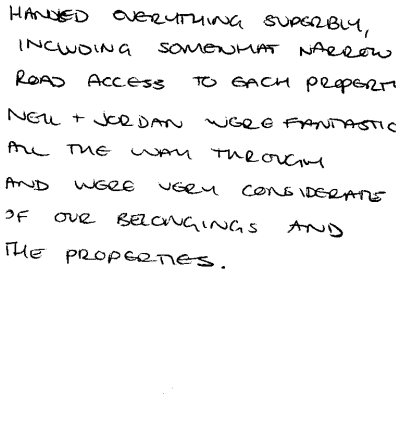 HANDED EVERYTHING SUPERBLY,
INCLUDING SOMEWHAT NARROW
ROAD ACCESS TO EACH PROPERT
NEIL + JORDAN WERE FANTASTIC
ALL THE WAY THROUGH
AND WERE VERY CONSIDERATE
OF OUR BELONGINGS AND
THE PROPERTIES.